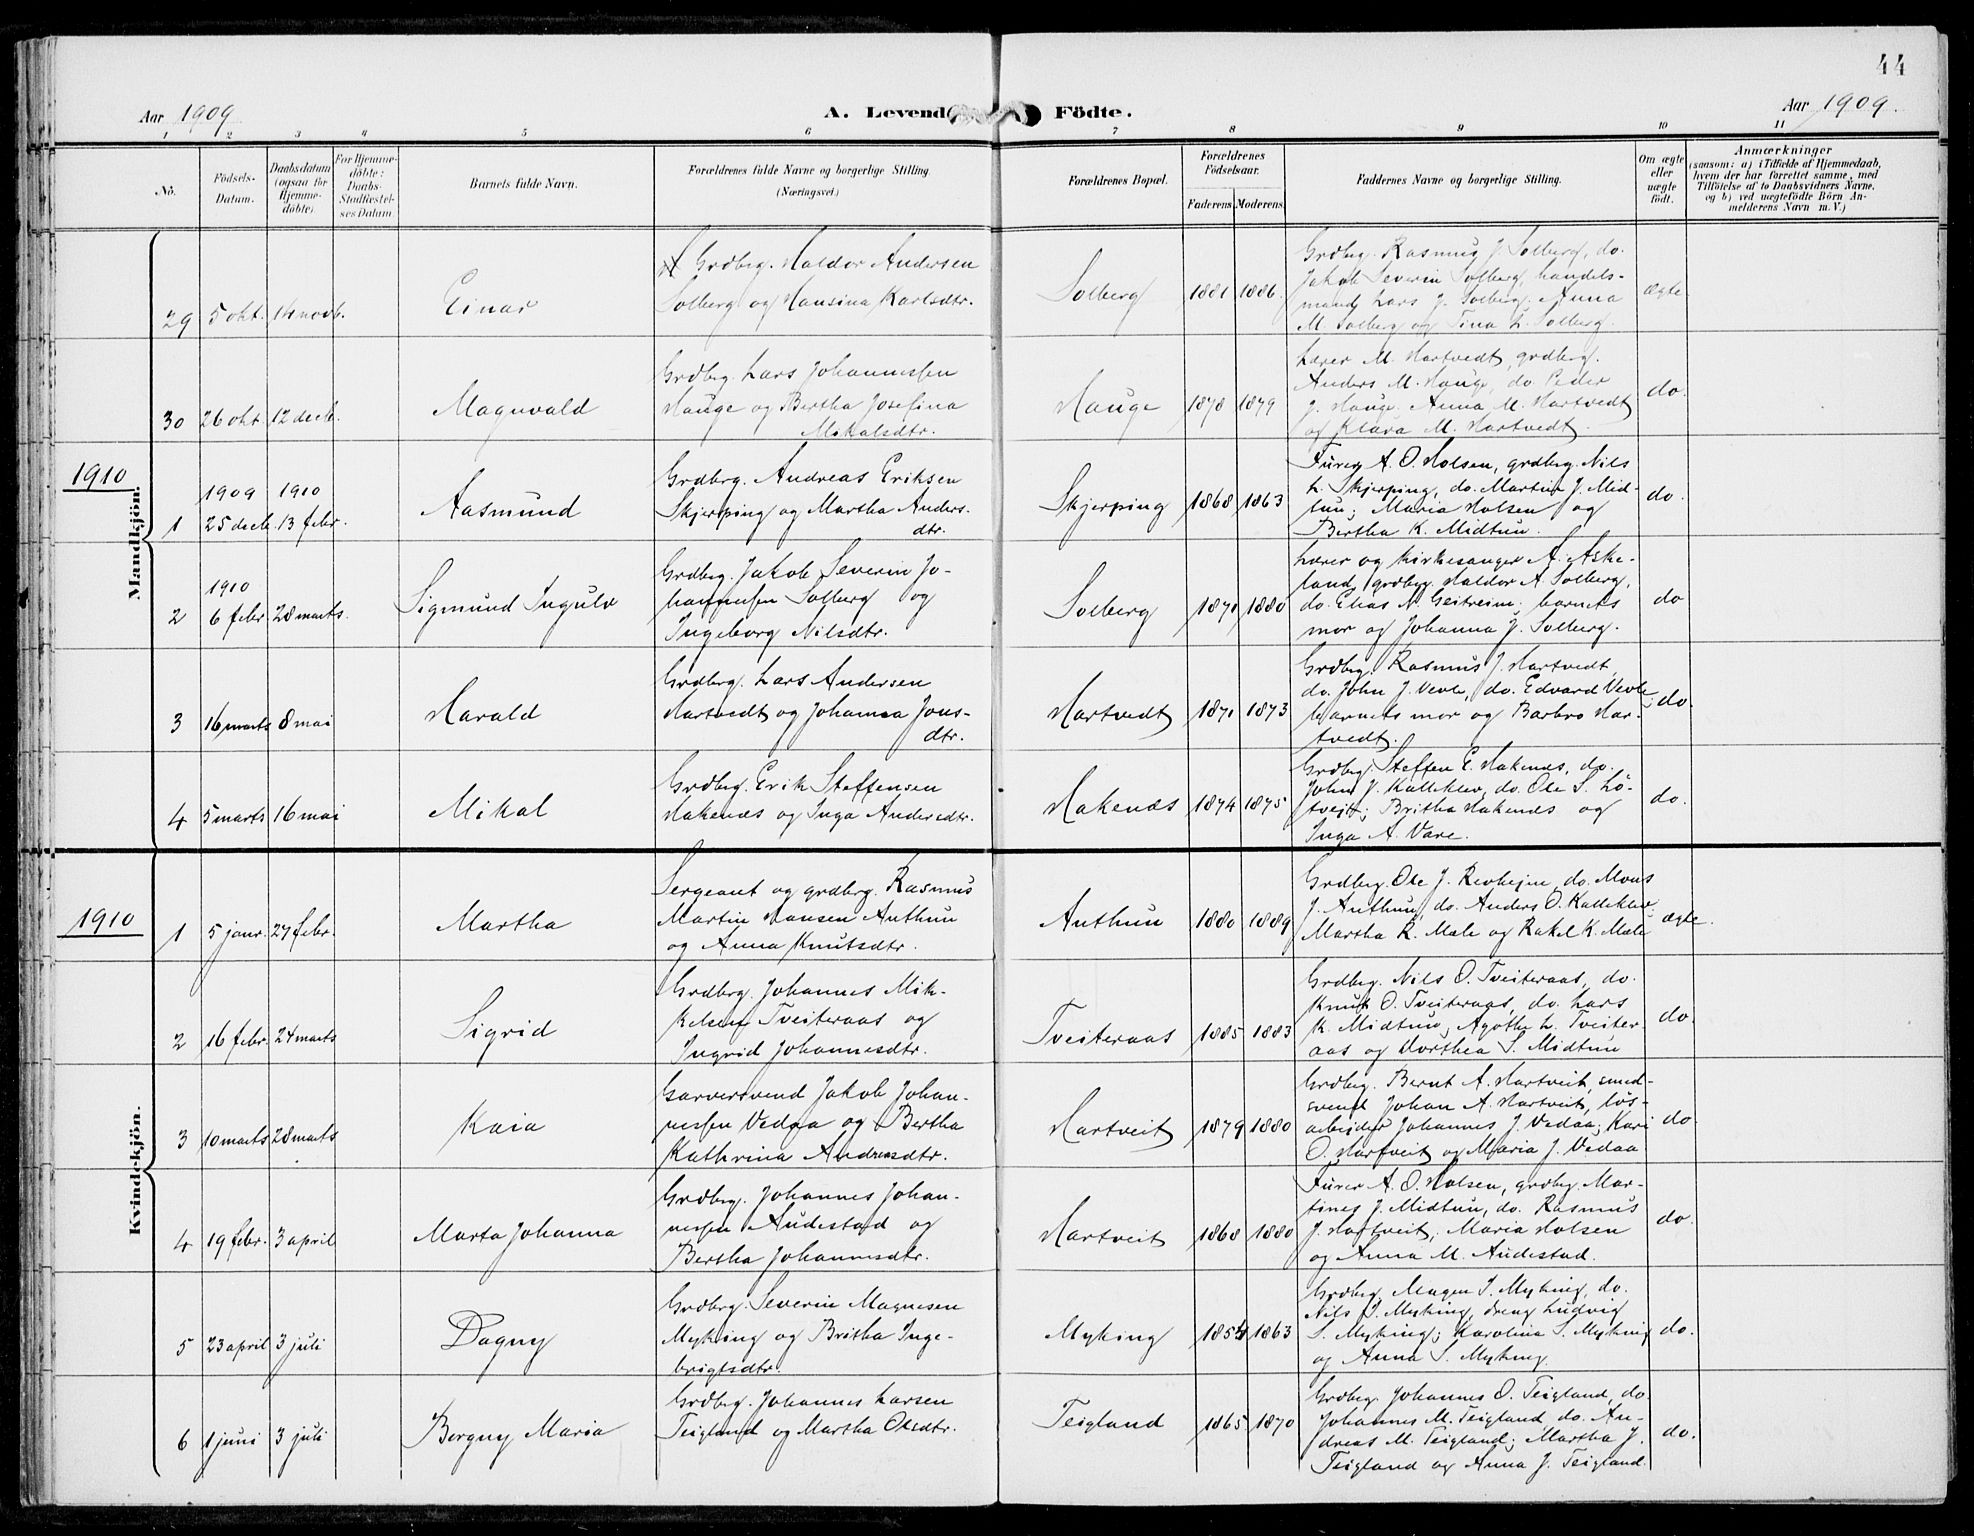 44
Aar 1909
A. Levende Födte.
Aar 1909.
1 2 3 4 5 6 7 8 9 10 11
No.
Födsels-
Datum.
Daabsdatum
(ogsaa för
Hjemme-
döbte).
For Hjemme-
döbte:
Daabs-
Stadfæstel-
ses Datum
Barnets fulde Navn.
Forældrenes fulde Navne og borgerlige Stilling
(Næringsvei)
Forældrenes Bopæl.
Forældrenes
Födselsaar.
Faderens Moderens
Faddernes Navne og borgerlige Stilling.
Om ægte
eller
uægte
födt.
Anmærkninger
(saasom: a) i Tilfælde af Hjemmedaab,
hvem der har forrettet samme, med
Tilföielse af to Daabsvidners Navne,
og b) ved uægtefödte Börn An-
melderens Navn m. V.)
Mandkjön.
29 5 okt. 14 novb.
Einar
Grdbrg. Haldor Andersen
Solberg og Hansina Karlsdtr.
Solberg 1881 1886.
Grdbrg. Rasmus J. Solberg, do.
Jakob Severin Solberg, handels-
mand Lars J. Solberg. Anna
M. Solberg og Tina L. Solberg.
ægte
30 26 okt. 12 decb.
Magnvald
Grdbrg. Lars Johannessen
Hauge og Bertha Josefina
Mikalsdtr.
Hauge 1878 1879
Lærer M. Hartvedt, grdbrg.
Anders M. Hauge, do Peder
J. Hauge. Anna M. Hartvedt
og Klara M. Hartvedt.
do.
1910
1909 1910
1 25 decb. 13 febr.
Aasmund
Grdbrg. Andreas Eriksen
Skjerping og Martha Anders-
dtr.
Skjerping 1868 1863
Furer A. O. Holsen, grdbrg. Nils
L. Skjerping, do. Martin J. Mid-
tun; Maria Holsen og
Bertha K. Midtun.
do.
1910
2 6 febr. 28 marts.
Sigmund Ingulv
Grdbrg. Jakob Severin Jo-
hannessen Solberg og
Ingeborg Nilsdtr.
Solberg 1871 1880
Lærer og kirkesanger A. Aske-
land, grdbrg. Haldor A. Solberg,
do. Elias N. Geitreim; barnets
mor og Johanna J. Solberg.
do
3 16 marts 8 mai
Harald
Grdbrg. Lars Andersen
Hartvedt og Johanna Jons-
dtr.
Hartvedt 1871 1873
Grdbrg. Rasmus J. Hartvedt,
do. John J. Vevle, do. Edvard Vevle
barnets mor og Barbro Har-
tvedt.
do.
4 5 marts 16 mai
Mikal
Grdbrg. Erik Steffensen
Hakenæs og Inga Andersdtr.
Hakenæs 1874 1875
Grdbrg. Steffen E. Hakenæs, do.
John J. Kalleklev, do. Ole S. Lö-
tveit; Britha Hakenæs og
Inga A. Våre.
do.
Kvindekjön.
1910
1 5 janr. 27 febr.
Martha
Sergeant og grdbrg. Rasmus
Martin Hansen Anthun
og Anna Knutsdtr.
Anthun 1880 1889
Grdbrg. Ole J. Revhejm, do. Mons
J. Anthun, do. Anders O. Kalleklev,
Martha R. Mæle og Rakel K. Mæle
ægte.
2 16 febr. 24 marts
Sigrid
Grdbrg. Johannes Mik-
kelsen Tveiteraas og
Ingrid Johannesdtr.
Tveiteraas 1885 1883
Grdbrg. Nils O. Tveiteraas, do.
Knut O. Tveiteraas, do. Lars
K. Midtun, Agothe L. Tveiter-
aas og Dorthea S. Midtun
do.
3 10 marts 28 marts
Kaia
Garversvend Jakob Johan-
nessen Vedaa og Bertha
Kathrina Andreasdtr.
Hartveit 1879 1880
Grdbrg. Bernt A. Hartveit, smed-
svend Johan A. Hartveit, lös-
arbeider Johannes J. Vedaa; Kari
O. Hartveit og Maria J. Vedaa
do.
4 19 febr. 3 april
Marta Johanna
Grdbrg. Johannes Johan-
nessen Audestad og
Bertha Johannesdtr.
Hartveit 1868 1880
Furer A. O. Holsen, grdbrg. Mar-
tines J. Midtun, do. Rasmus
J. Hartveit; Maria Holsen
og Anna M. Audestad.
do.
5 23 april 3 juli
Dagny
Grdbrg. Severin Magnesen
Myking og Britha Inge-
brigtsdtr.
Myking 1854 1863
Grdbrg. Magne S. Myking, do.
Nils S. Myking, dreng Ludvig
S. Myking; Karolina S. Myking
og Anna S. Myking.
do.
6 1 juni 3 juli
Borgny Maria
Grdbrg. Johannes Larsen
Teigland og Martha Olsdtr.
Teigland 1865 1870
Grdbrg. Johannes O. Teigland, do
Johannes M. Teigland do. An-
dreas M. Teigland; Martha J.
Teigland og Anna J. Teigland.
do.